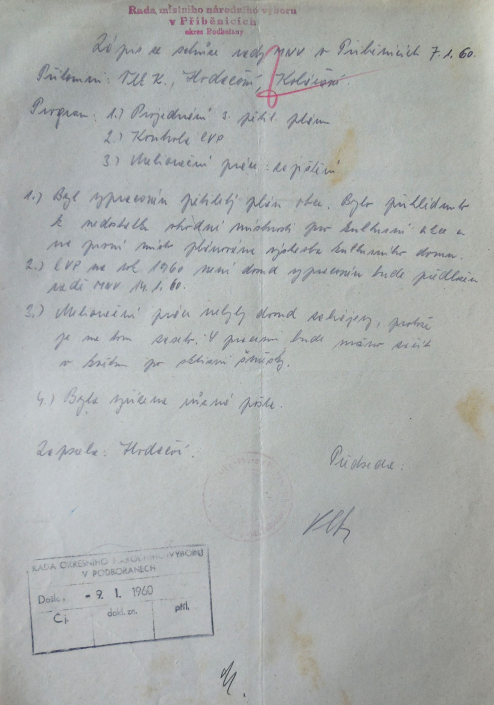 Rada místního národního výboru
v Příběnicích
okres Podbořany
Zápis ze schůze rady MNV v Příběnicích 7.1.60.
Přítomni: Hodačová, Kolářová
Program: 1.) Projednání 3. pětil. plánu
2.) Kontrola CVP
3) Meliorační práce: zajištění
1.) Byl vypracován pětiletý plán obce. Bylo přihlédnuto
k nedostatku vhodné místnosti pro kulturní akce a
na první místo plánována výstavba kulturního domu.
2.) CVP na rok 1960 není dosud vypracován bude předložen
radě MNV 14.1.60.
3.) Meliorační práce nebyly dosud zahájeny, protože
je na tom zaseto. S pracemi bude možno začít
v po sklizni
4.) Byla vyřízena různá pošta.
Zapsala: Hodačová.
Předseda:
RADA OKRESNÍHO NÁRODNÍHO VÝBORU
V PODBOŘANECH
Došlo: - 9. I. 1960
Čj. dokl. zn. příl.